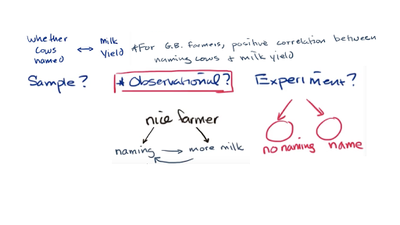 whether cows named ↔ milk yield *For G.B. farmers, positive correlation between naming cows & milk yield
Sample? * Observational? Experiment?
nice farmer
naming → more milk
no naming name